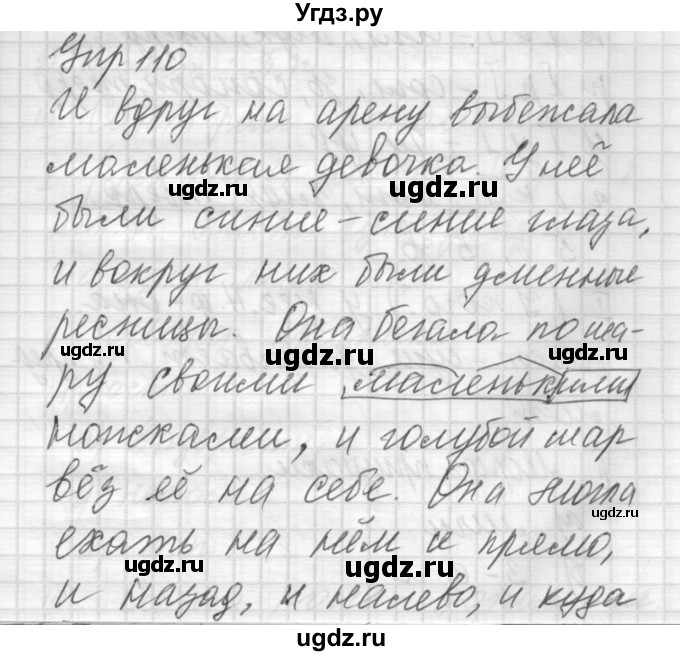 Угдз.ру
Упр 110
И вдруг на арену выбежала
маленькая девочка. У неё
ugdz.ru ugdz.ru
были синие-синие глаза,
и вокруг них были дменные
ресницы. Она бегала по ша-
ugdz.ru ugdz.ru ugdz.ru
ру своими маленькими
ножками, и голубой шар
ugdz.ru
вёз её на себе. Она могла
ugdz.ru
ехать на нём и прямо,
ugdz.ru ugdz.ru
и назад, и налево, и куда
ugdz.ru